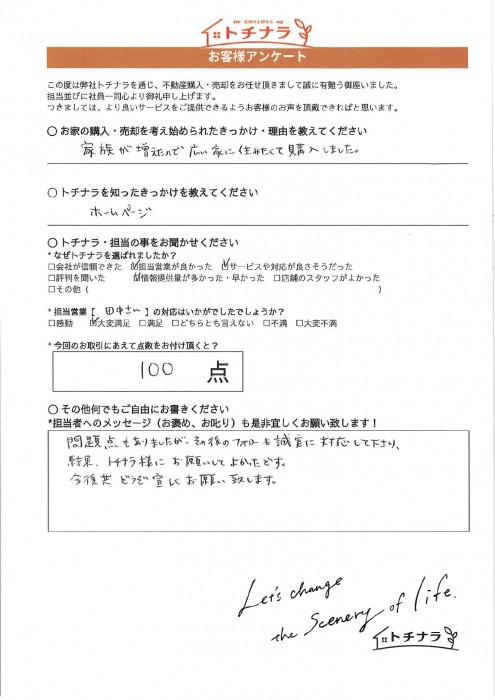 トチナラ
お客様アンケート
この度は弊社トチナラを通じ、不動産購入・売却をお任せ頂きまして誠に有難う御座いました。
担当並びに社員一同心より御礼申し上げます。
つきましては、より良いサービスをご提供できるようお客様のお声を頂戴できればと思います。
〇 お家の購入・売却を考え始められたきっかけ・理由を教えてください
家族が増えたので広い家に住みたくて購入しました。
〇 トチナラを知ったきっかけを教えてください
ホームページ
〇 トチナラ・担当の事をお聞かせください
* なぜトチナラを選ばれましたか？
□会社が信頼できた ☑担当営業が良かった ☑サービスや対応が良さそうだった
□評判を聞いた ☑情報提供量が多かった・早かった □店舗のスタッフがよかった
□その他（ ）
* 担当営業【 田中さん 】の対応はいかがでしたでしょうか？
□感動 ☑大変満足 □満足 □どちらとも言えない □不満 □大変不満
* 今回のお取引にあえて点数をお付け頂くと？
100 点
〇 その他何でもご自由にお書きください
*担当者へのメッセージ（お褒め、お叱り）も是非宜しくお願い致します！
問題点もありましたが、その後のフォローも誠実に対応して下さり、
結果、トチナラ様にお願いしてよかったです。
今後共どうぞ宜しくお願い致します。
Let's change
the Scenery of life.
トチナラ